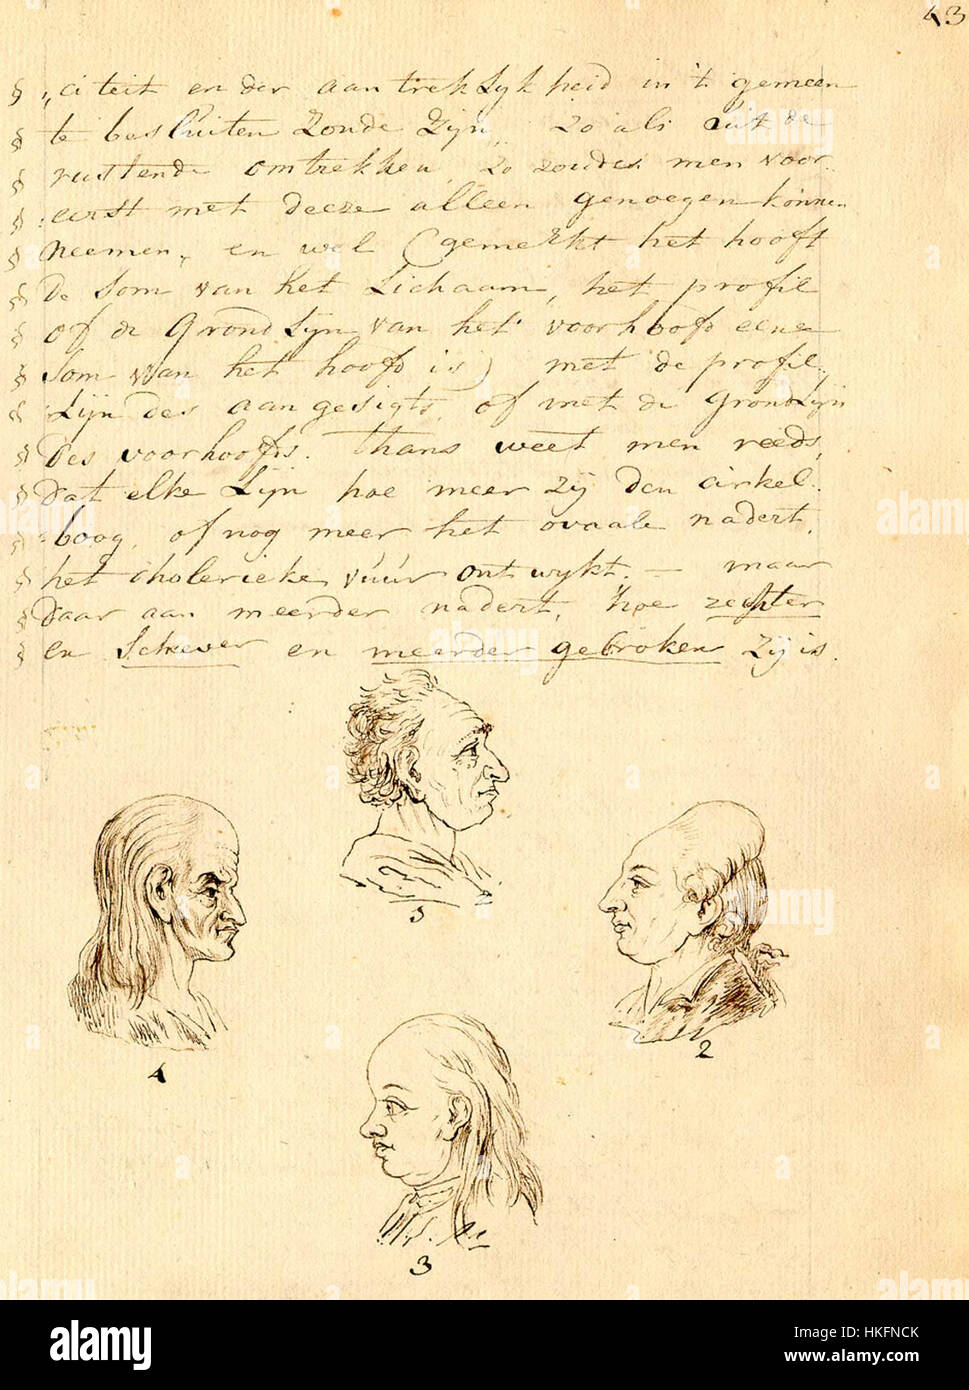 43
§ „citeit en der aantreklykheid in 't gemeen
§ te besluiten zoude zyn, zo als uit de
§ rustende omtrekken, zo zoude men voor
§ :eerst met deeze alleen genoegen konnen
§ neemen, en wel (gemerkt het hooft
§ de som van het Lichaam, het profil
§ of de GrondLyn van het voorhoofd eene
§ som van het hoofd is) met de profil:
§ Lyn des aangesigts, of met de GrondLyn
§ des voorhoofds. thans weet men reeds,
§ dat elke Lyn hoe meer zy den cirkel:
§ :boog, of nog meer het ovaale nadert,
§ het cholerieke vúúr ontwykt. — maar
§ daar aan meerder nadert, hoe zechter
§ en Schever en meerder gebroken zy is.
5
4
2
3
alamy
Image ID: HKFNCK
www.alamy.com